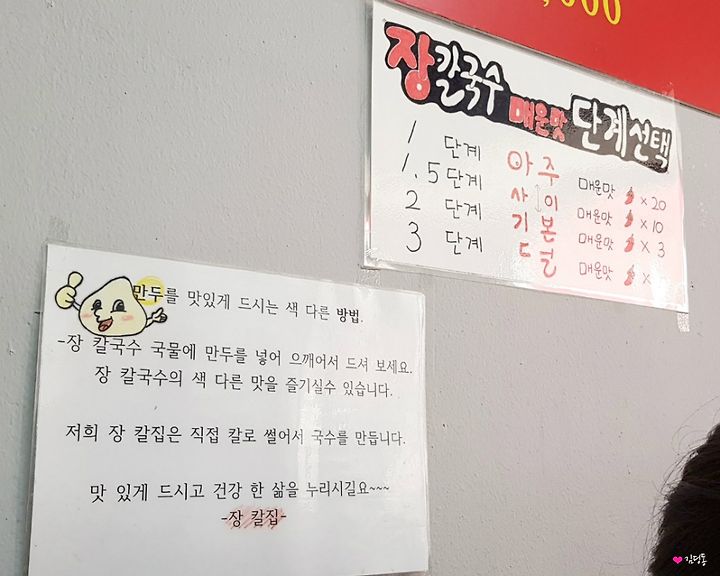 ,000
장칼국수 매운맛 단계선택
1 단계 아주 매운맛 × 20
1.5 단계 사이 매운맛 × 10
2 단계 기본 매운맛 × 3
3 단계 덜 매운맛 ×
만두를 맛있게 드시는 색 다른 방법.
-장 칼국수 국물에 만두를 넣어 으깨어서 드셔 보세요.
장 칼국수의 색 다른 맛을 즐기실수 있습니다.
저희 장 칼집은 직접 칼로 썰어서 국수를 만듭니다.
맛 있게 드시고 건강 한 삶을 누리시길요~~~
-장 칼집-